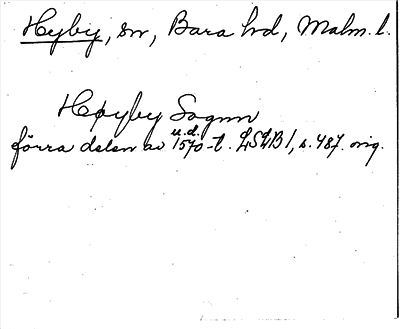 Hyby, sn, Bara hd, Malm. l.
Høyby Sognn
u.d.
förra delen av 1570-t. LSÆB 1, s. 487. orig.